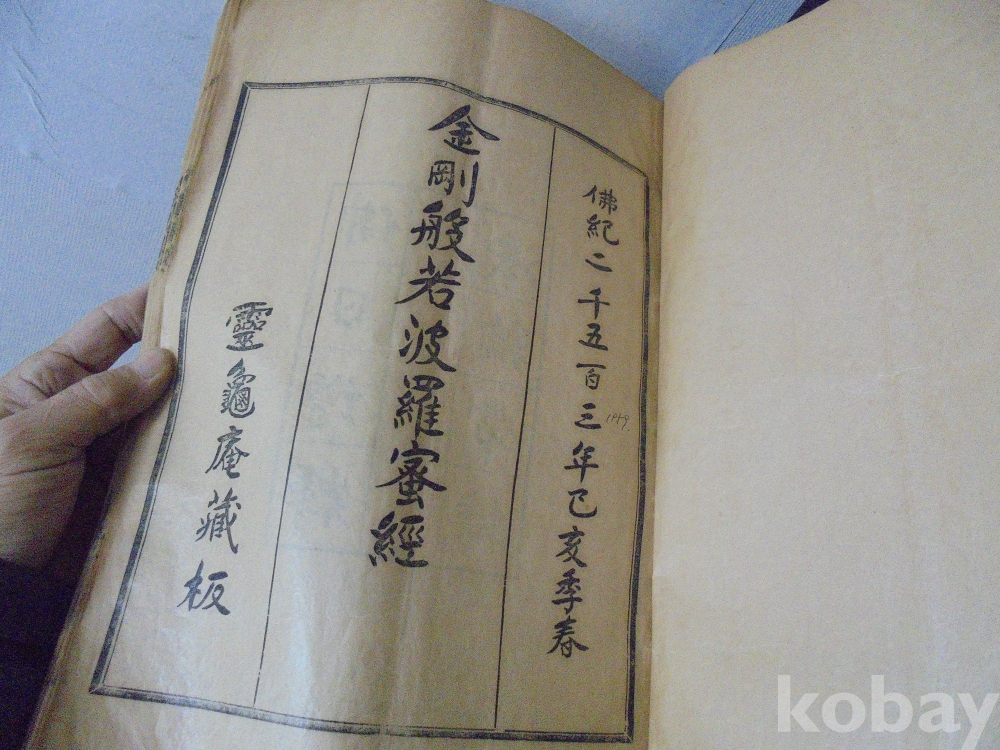 佛紀二千五百三年己亥季春
1959.
金剛般若波羅蜜經
靈龜庵藏板
kobay